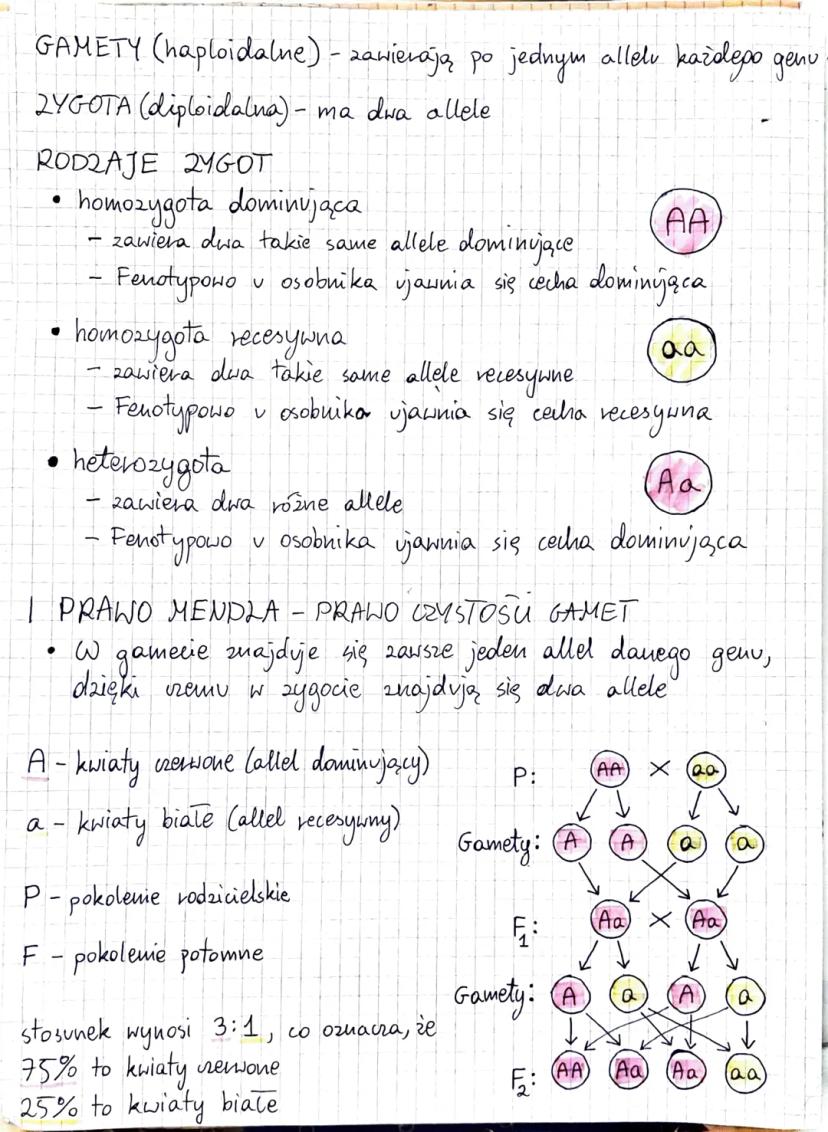 GAMETY (haploidalne) - zawierają po jednym allelu każdego genu
ZYGOTA (diploidalna) - ma dwa allele
RODZAJE ZYGOT
• homozygota dominująca
AA
- zawiera dwa takie same allele dominujące
- Fenotypowo u osobnika ujawnia się cecha dominująca
• homozygota recesywna
aa
- zawiera dwa takie same allele recesywne
- Fenotypowo u osobnika ujawnia się cecha recesywna
• heterozygota
Aa
- zawiera dwa różne allele
- Fenotypowo u osobnika ujawnia się cecha dominująca
I PRAWO MENDLA - PRAWO CZYSTOŚCI GAMET
• W gamecie znajduje się zawsze jeden allel danego genu,
dzięki czemu w zygocie znajdują się dwa allele
A - kwiaty czerwone (allel dominujący)
a - kwiaty białe (allel recesywny)
P - pokolenie rodzicielskie
F - pokolenie potomne
stosunek wynosi 3:1, co oznacza, że
75% to kwiaty czerwone
25% to kwiaty białe
P: AA × aa
Gamety: A A a a
F1: Aa × Aa
Gamety: A a A a
F2: AA Aa Aa aa